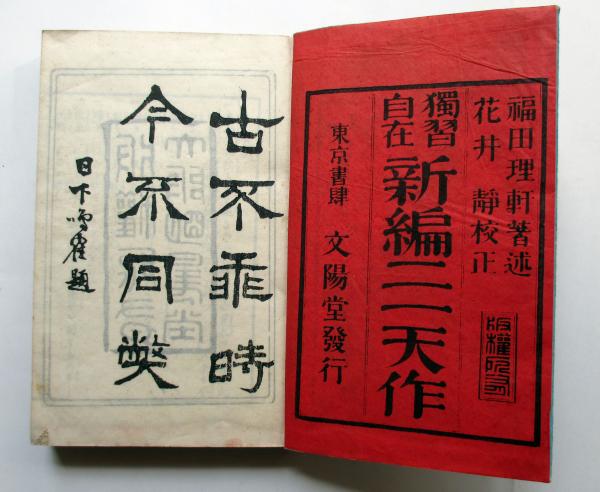 福田理軒著述
花井 靜校正
版權所有
獨習
自在
新編二一天作
東京書肆 文陽堂發行
古不乖時
今不同弊
日下鳴隺題